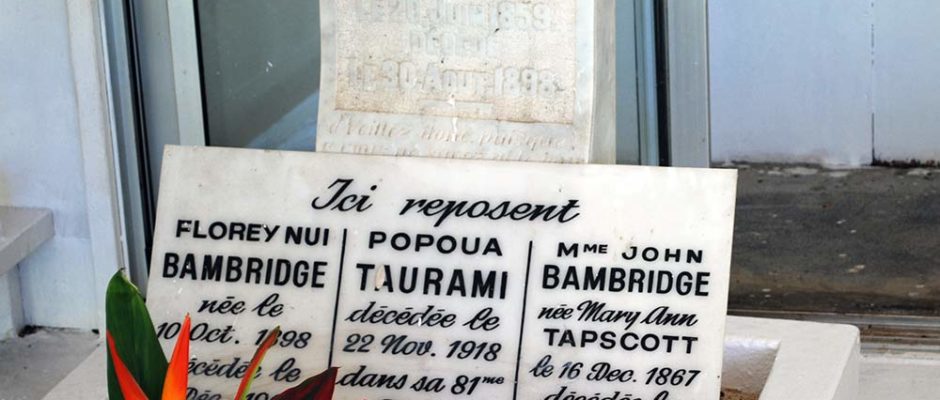 Le 20 Juin 1859
Décédé
Le 30 Août 1898
Veillez donc puisque
Ici reposent
FLOREY NUI
BAMBRIDGE
née le
10 Oct. 1898
décédée le
Déc.
POPOUA
TAURAMI
décédée le
22 Nov. 1918
dans sa 81me
MME JOHN
BAMBRIDGE
née Mary Ann
TAPSCOTT
le 16 Dec. 1867
décédée le